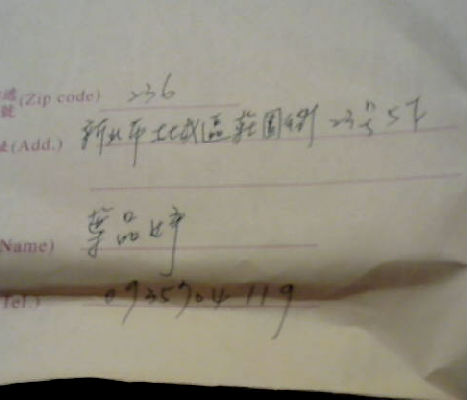 (Zip code) 236
(Add.) 新北市土城區莊園街 23 5F
Name) 葉品婷
Tel.) 0935704119